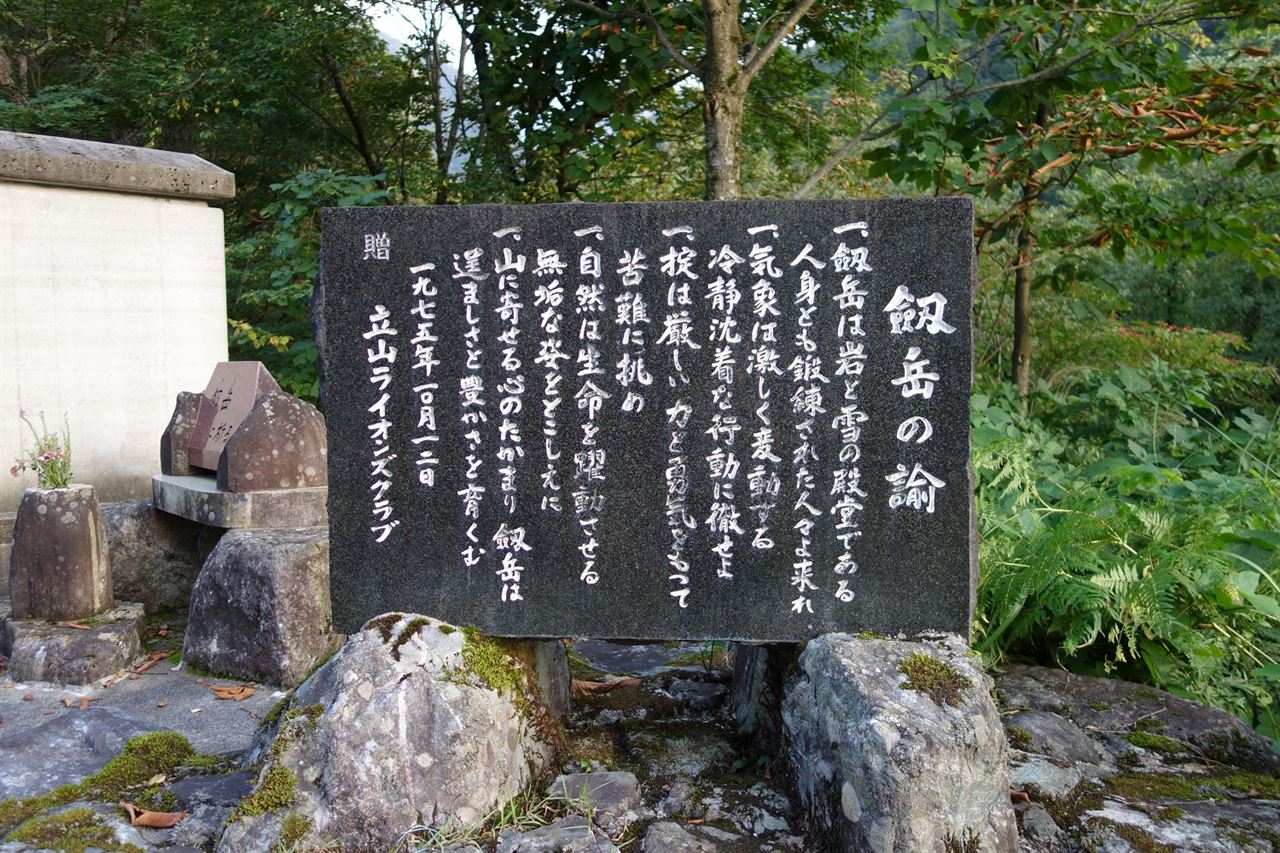 劔岳の諭
一、劔岳は岩と雪の殿堂である
人身とも鍛錬された人々よ来れ
一、気象は激しく変動する
冷静沈着な行動に徹せよ
一、掟は厳しい力と勇気をもって
苦難に挑め
一、自然は生命を躍動させる
無垢な姿をとこしえに
一、山に寄せる心のたかまり 劔岳は
逞ましさと豊かさを育くむ
一九七五年一〇月一二日
立山ライオンズクラブ
贈